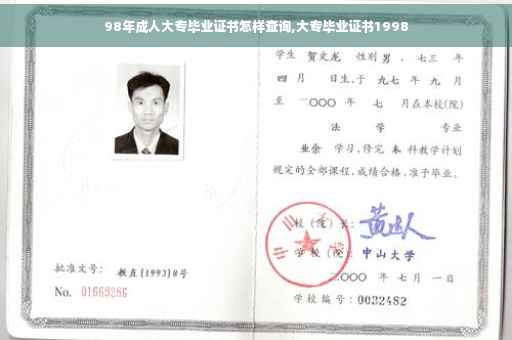 98年成人大专毕业证书怎样查询,大专毕业证书1998
学生 贺文龙 性别男,七三 年
四 月 日生,于 九七 年 九 月
至 二〇〇〇 年 七 月在本校(院)
法 学 专业
业余 学习,修完 本 科教学计划
规定的全部课程,成绩合格,准予毕业。
校(院)长:
学校(院): 中山大学
二〇〇〇 年 七 月 一 日
批准文号: 教直[1993]8号
No. 01669286
学校编号: 0032482